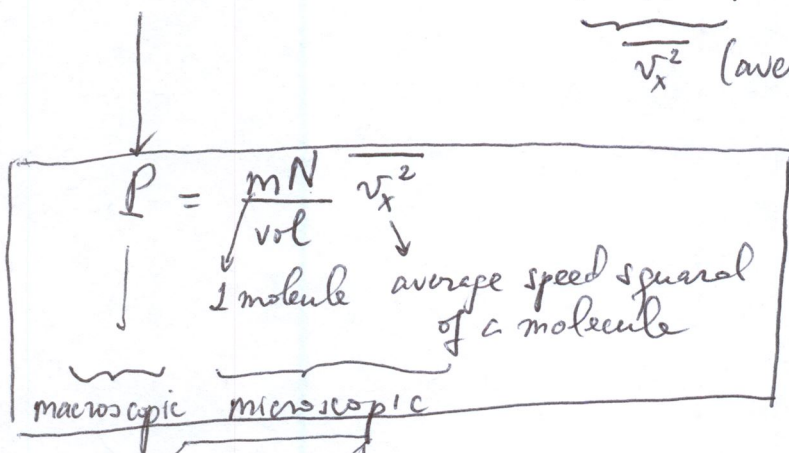 v̅ₓ²̅ (ave
P = mN/vol v̅ₓ²̅
1 molecule average speed squared
of a molecule
macroscopic microscopic